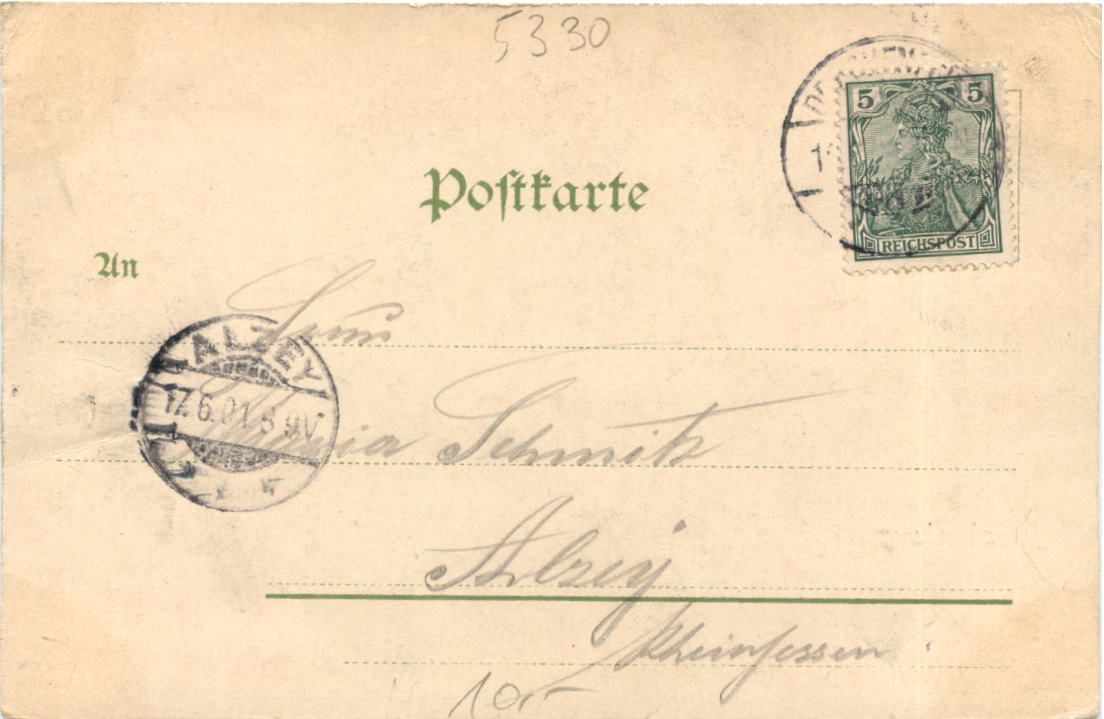 5330
5 5
REICHSPOST
Poſtkarte
An
ALZEY
17.6.01 8-9V.
Maria Schmitz
Alzey
Rheinhessen
10,-